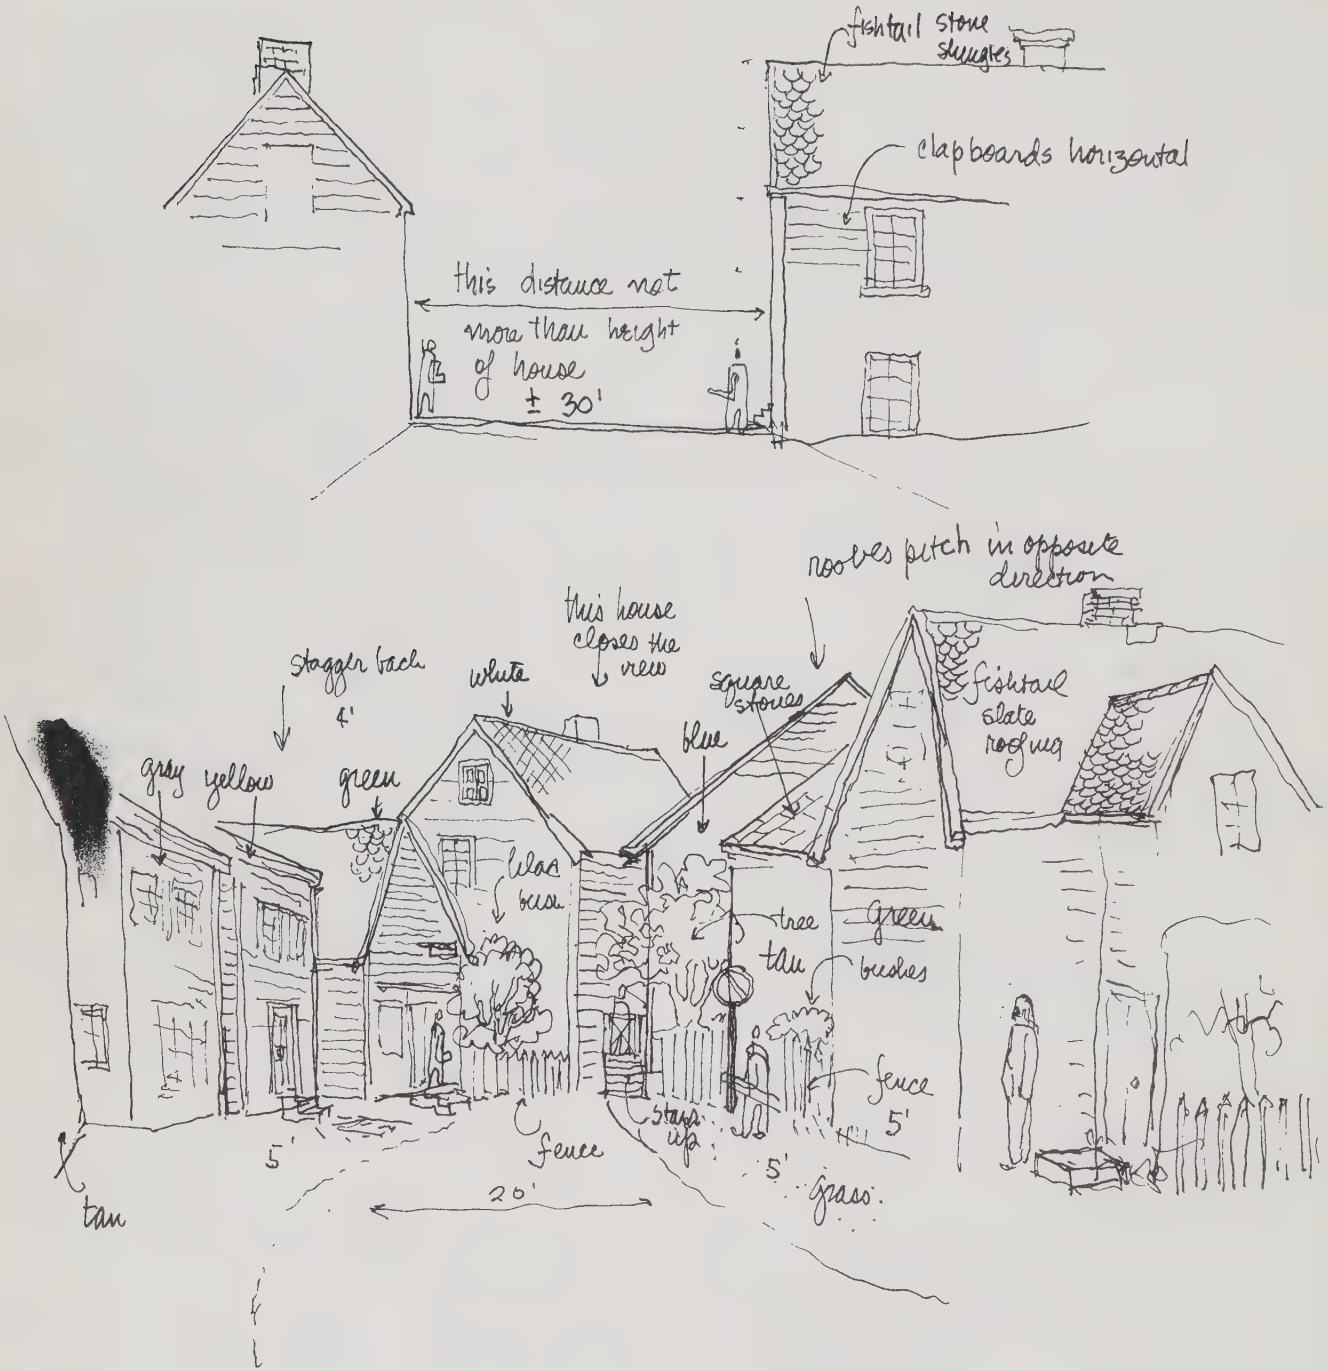 fishtail stone
shingles
clapboards horizontal
this distance not
more than height
of house
± 30'
rooves pitch in opposite
direction
this house
closes the
view
stagger back
4'
white
square
stones
fishtail
slate
roofing
blue
gray
yellow
green
lilac
bush
tree
green
tan
bushes
fence
5'
stairs
up
fence
5'
5'
grass
20'
tan